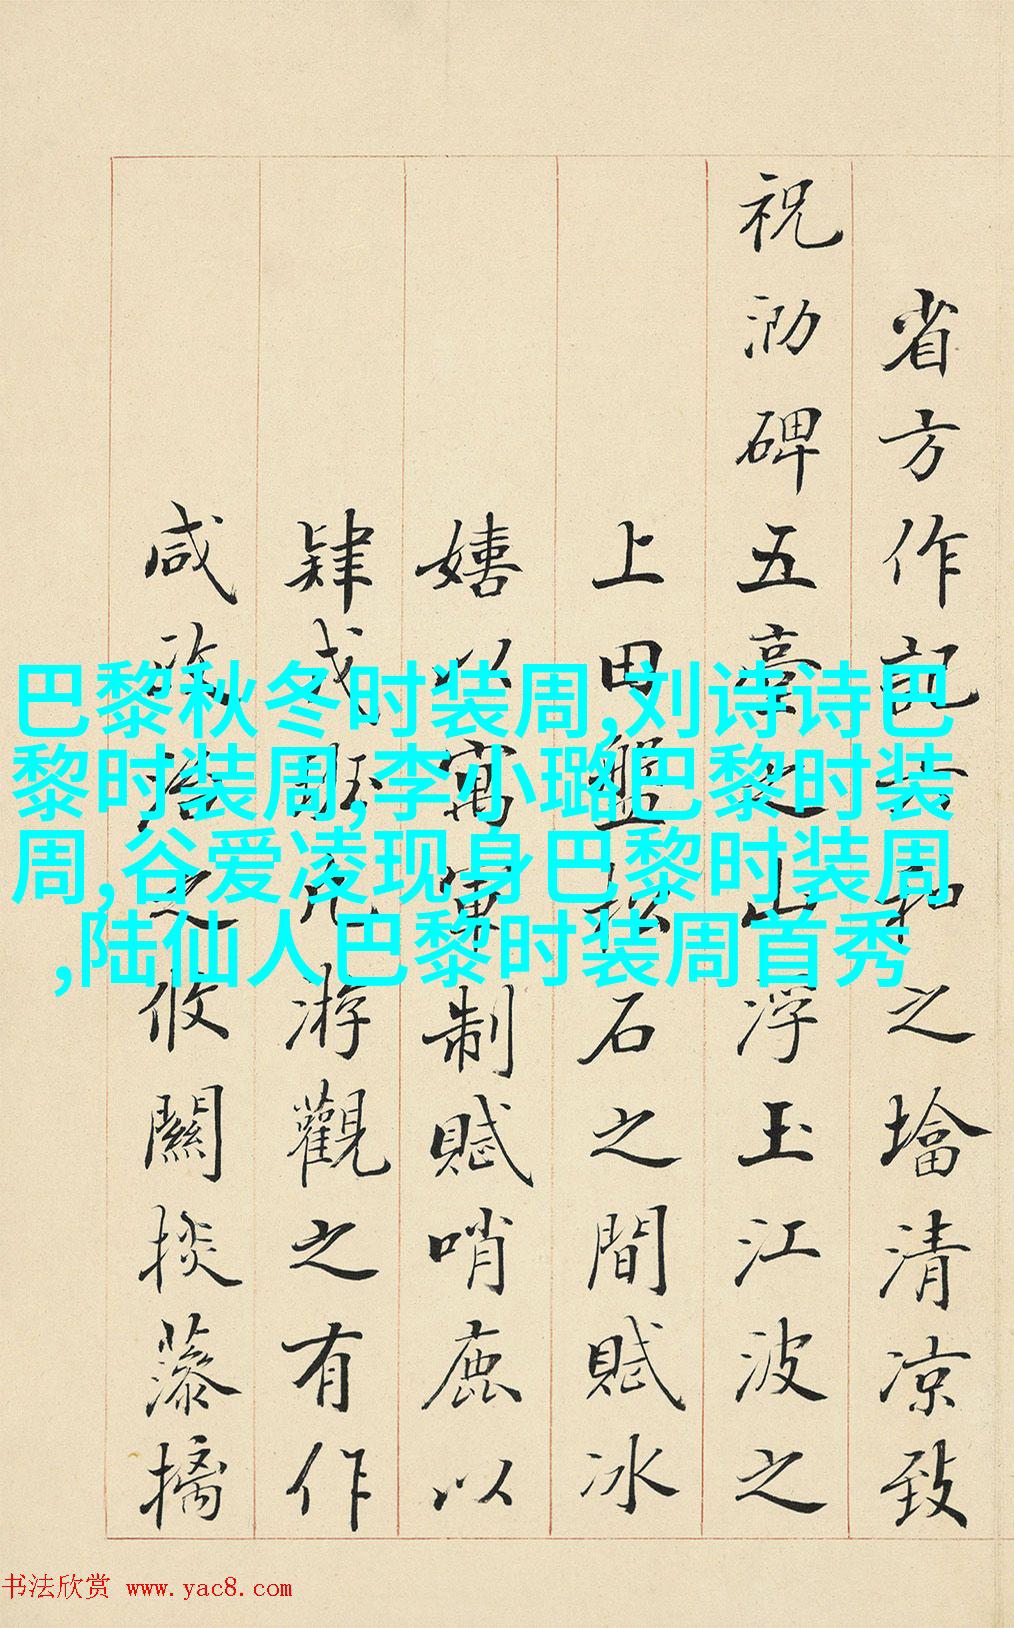 省方作記和之墖清凉致
祝泐碑五臺之山浮玉江波之
上田盤松石之間賦冰
嬉以寓軍制賦哨鹿以
肆凡游觀之有作
咸之攸關掞藻摛
巴黎秋冬时装周,刘诗诗巴
黎时装周,李小璐巴黎时装
周,谷爱凌现身巴黎时装周
,陆仙人巴黎时装周首秀
书法欣赏 www.yac8.com